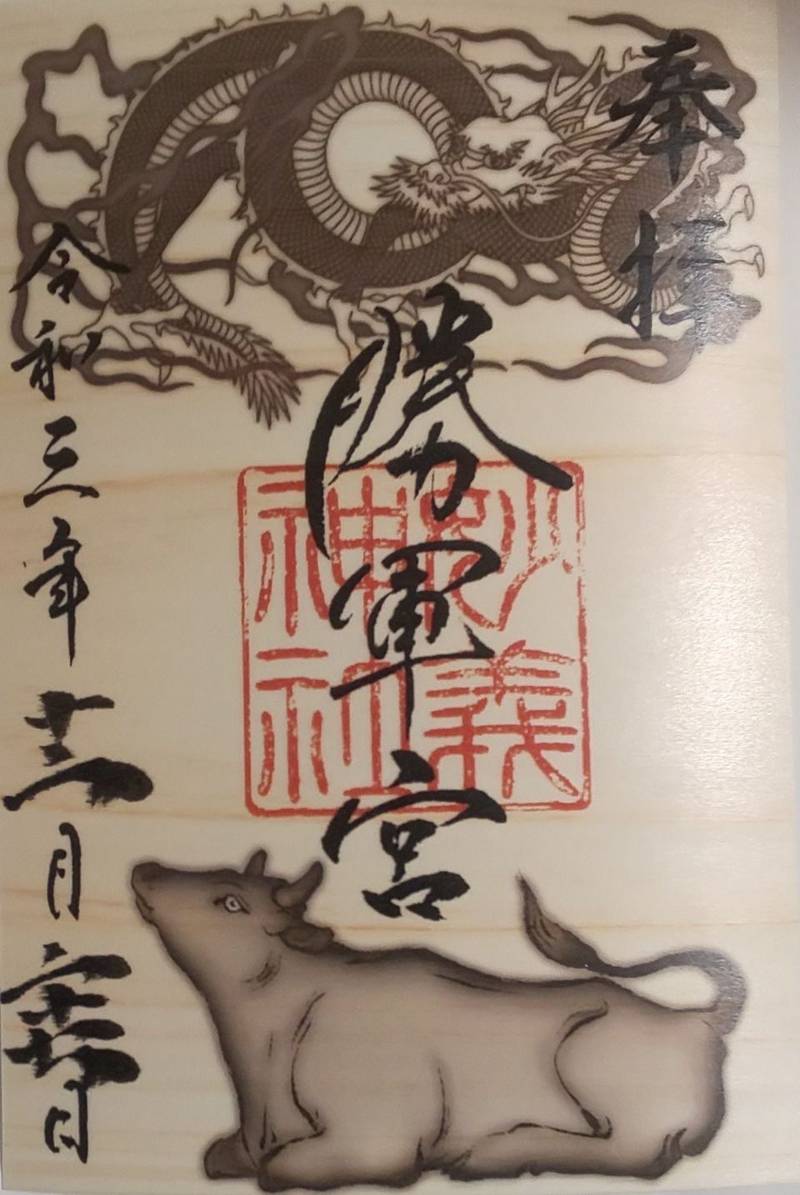 奉拝
勝軍宮
妙義
神社
令和三年十二月 日